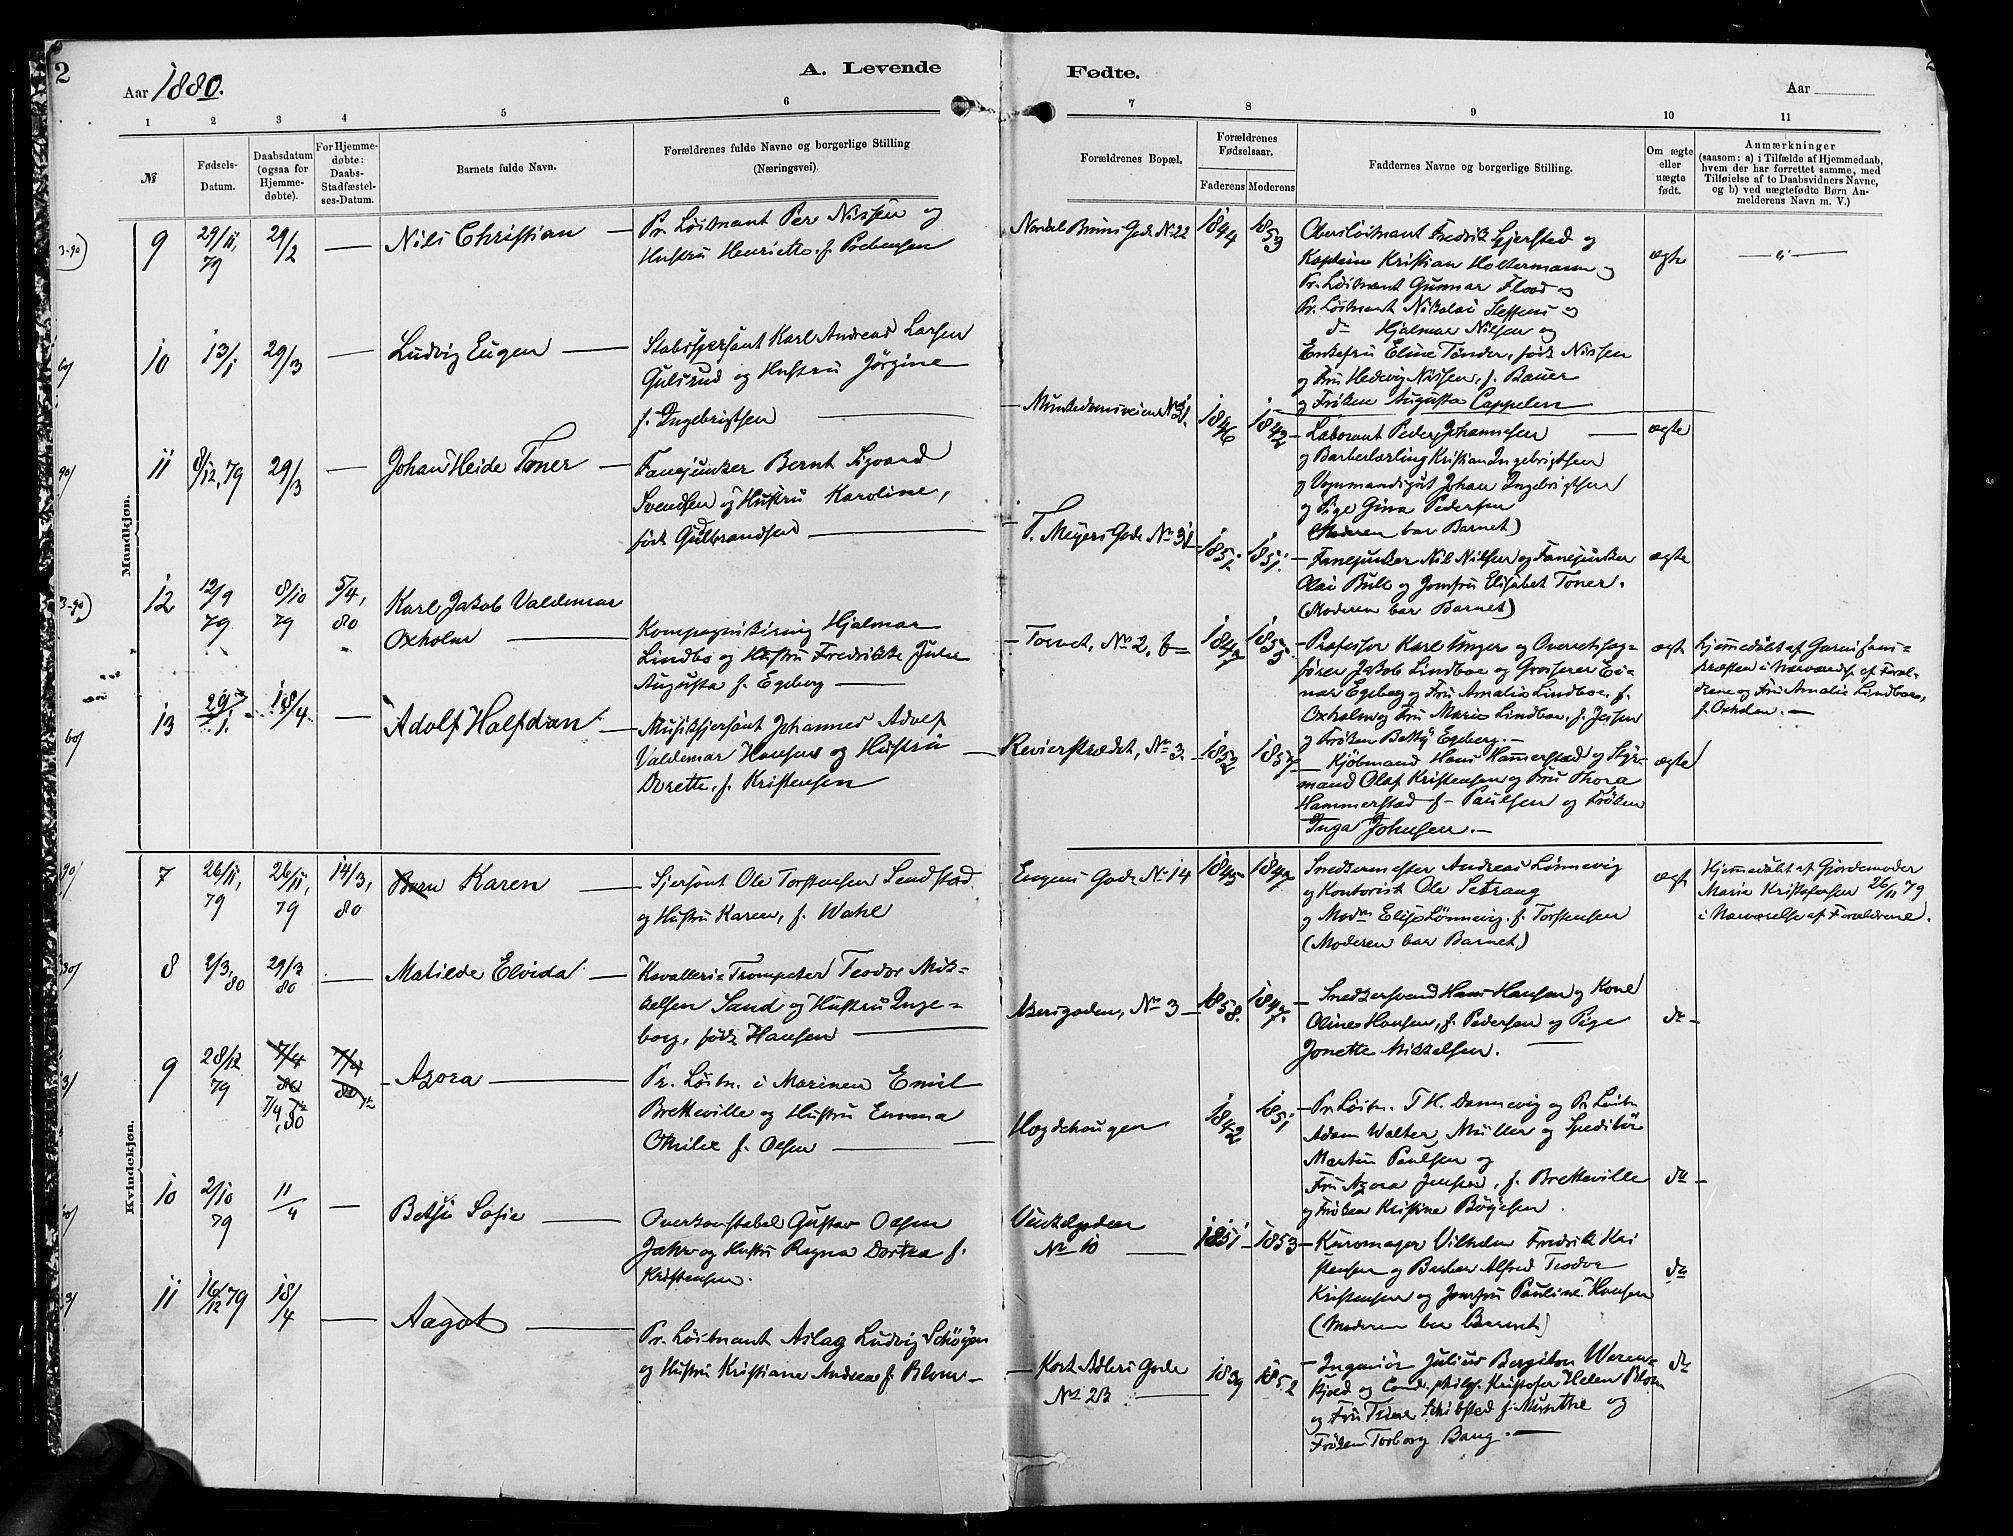 2
Aar 1880.
A. Levende
Fødte.
Aar
1 2 3 4 5 6
7 8 9 10 11
№
Fødsels-
Datum.
Daabsdatum
(ogsaa for
Hjemme-
døbte).
For Hjemme-
døbte:
Daabs-
Stadfæstel-
ses-Datum.
Barnets fulde Navn.
Forældrenes fulde Navne og borgerlige Stilling
(Næringsvei).
Forældrenes Bopæl.
Forældrenes
Fødselsaar.
Faderens Moderens
Faddernes Navne og borgerlige Stilling.
Om ægte
eller
uægte
født.
Anmærkninger
(saasom: a) i Tilfælde af Hjemmedaab,
hvem der har forrettet samme, med
Tilføielse af to Daabsvidners Navne,
og b) ved uægtefødte Børn An-
melderens Navn m. V.)
Mandkjøn.
9 29/11, 79 29/2 — Nils Christian —
Pr. Löitnant Per Nissen og
Hustru Henriette f. Prebensen
Nordal Bruns Gade No 22 1844 1853
Oberstlöitnant Fredrik Gjerstad og
Kaptein Kristian Holtermann og
Pr. Löitnant Gunnar Flood og
Pr. Löitnant Nikolai Steffens og
do Hjalmar Nilsen og
Enkefru Eline Tönder, født Nissen
og Fru Hedevig Nissen, f. Bauer
og Fröken Augusta Cappelen
ægte
10 13/1 29/3 — Ludvig Eugen —
Stabssjersant Karl Andreas Larsen
Gulsrud og Hustru Jörgine
f. Ingebrigtsen
Munkedamsveien No 31. 1846 1842
Laborant Peder Johannesen —
og Barberlærling Kristian Ingebrigtsen
og Vognmandsgut Johan Ingebrigtsen
og Pige Gina Pedersen
(Moderen bar Barnet)
ægte
11 8/12, 79 29/3 — Johan Heide Toner —
Fanejunker Bernt Sigvard
Svendsen og Hustru Karoline,
født Gulbrandsen
T. Meyers Gade No 31 1851. 1851.
Fanejunker Nil Nilsen og Fanejunker
Olai Bull og Jomfru Elisabet Toner.
(Moderen bar Barnet)
ægte
12 12/9 79 8/10 79 5/4, 80 Karl Jakob Valdemar
Oxholm —
Kompagnikirurg Hjalmar
Lindbo og Hustru Fredrikke Julie
Augusta f. Egeberg —
Torvet, No 2, b 1847 1855
Professor Karl Unger og Overretssag-
fører Jakob Lindboe og Grosserer Ei-
nar Egeberg og Fru Amalie Lindboe, f.
Oxholm og Fru Marie Lindboe, f. Jensen
og Fröken Betty Egeberg. —
ægte
Hjemmedöbt af Garnisons-
præsten i Nærværelse af Foræl-
drene og Fru Amalie Lindboe,
f. Oxholm. —
13 29/1. 18/4 — Adolf Halfdan —
Musiksjersant Johannes Adolf
Valdemar Hansen og Hustru
Dorette, f. Kristensen
Revierstrædet, No 3. 1852 1857
Kjöbmand Hans Hammerstad og Styr-
mand Olaf Kristensen og Fru Thora
Hammerstad f. Paulsen og Fröken
Inga Johnsen. —
ægte
Kvindekjøn.
7 26/11, 79 26/11, 79 14/3, 80 Barn Karen —
Sjersant Ole Torstensen Sendstad
og Hustru Karen, f. Wahl
Eugens Gade No 14 1845 1847
Snedkermester Andreas Lönnevig
og Kontorist Ole Setrang
og Mad. Elise Lönnevig f. Torstensen
(Moderen bar Barnet)
ægte
Hjemmedöbt af Gjordemoder
Marie Kristofersen 26/11 79
i Nærværelse af Forældrene.
8 2/3, 80 29/3 80 — Matilde Elvida —
Kavalleri-Trompeter Teodor Mik-
kelsen Sand og Hustru Inge-
borg, født Hansen
Akersgaden, No 3 1858. 1847.
Snedkersvend Hans Hansen og Kone
Oline Hansen, f. Pedersen og Pige
Jonette Mikkelsen.
do —
9 28/12 79 7/4 80 7/4 80 7/4 80 Azora —
Pr. Löitn. i Marinen Emil
Bretteville og Hustru Emma
Otilie f. Olsen
Hægdehaugen 1842 1851
Pr. Löitn. T. H. Dannevig og Pr. Löitn.
Adam Walter Müller og Speditör
Martin Paulsen og
Fru Azora Jensen, f. Bretteville
og Fröken Kristine Böyesen.
do —
10 2/10 79 11/4 — Betsi Sofie —
Overkonstabel Gustav Olsen
Jahr og Hustru Ragna Dortea f.
Kristensen.
Vinkelgaden
No 10 1851 1853
Kurvmager Vilhelm Fredrik Kri
stensen og Barber Alfred Teodor
Kristensen og Jomfru Pauline Hansen
(Moderen bar Barnet)
do
11 16/12 79 18/4 — Aagot —
Pr. Löitnant Aslag Ludvig Schöyen
og Hustru Kristiane Andrea f. Blom
Kort Adlers Gade
No 23 1839 1852
Ingeniör Julius Bergiton Weren-
skjold og Cand. philos. Kristofer Helen Blom
og Fru Trine Schibsted f. Munthe og
Fröken Torborg Bang. —
do